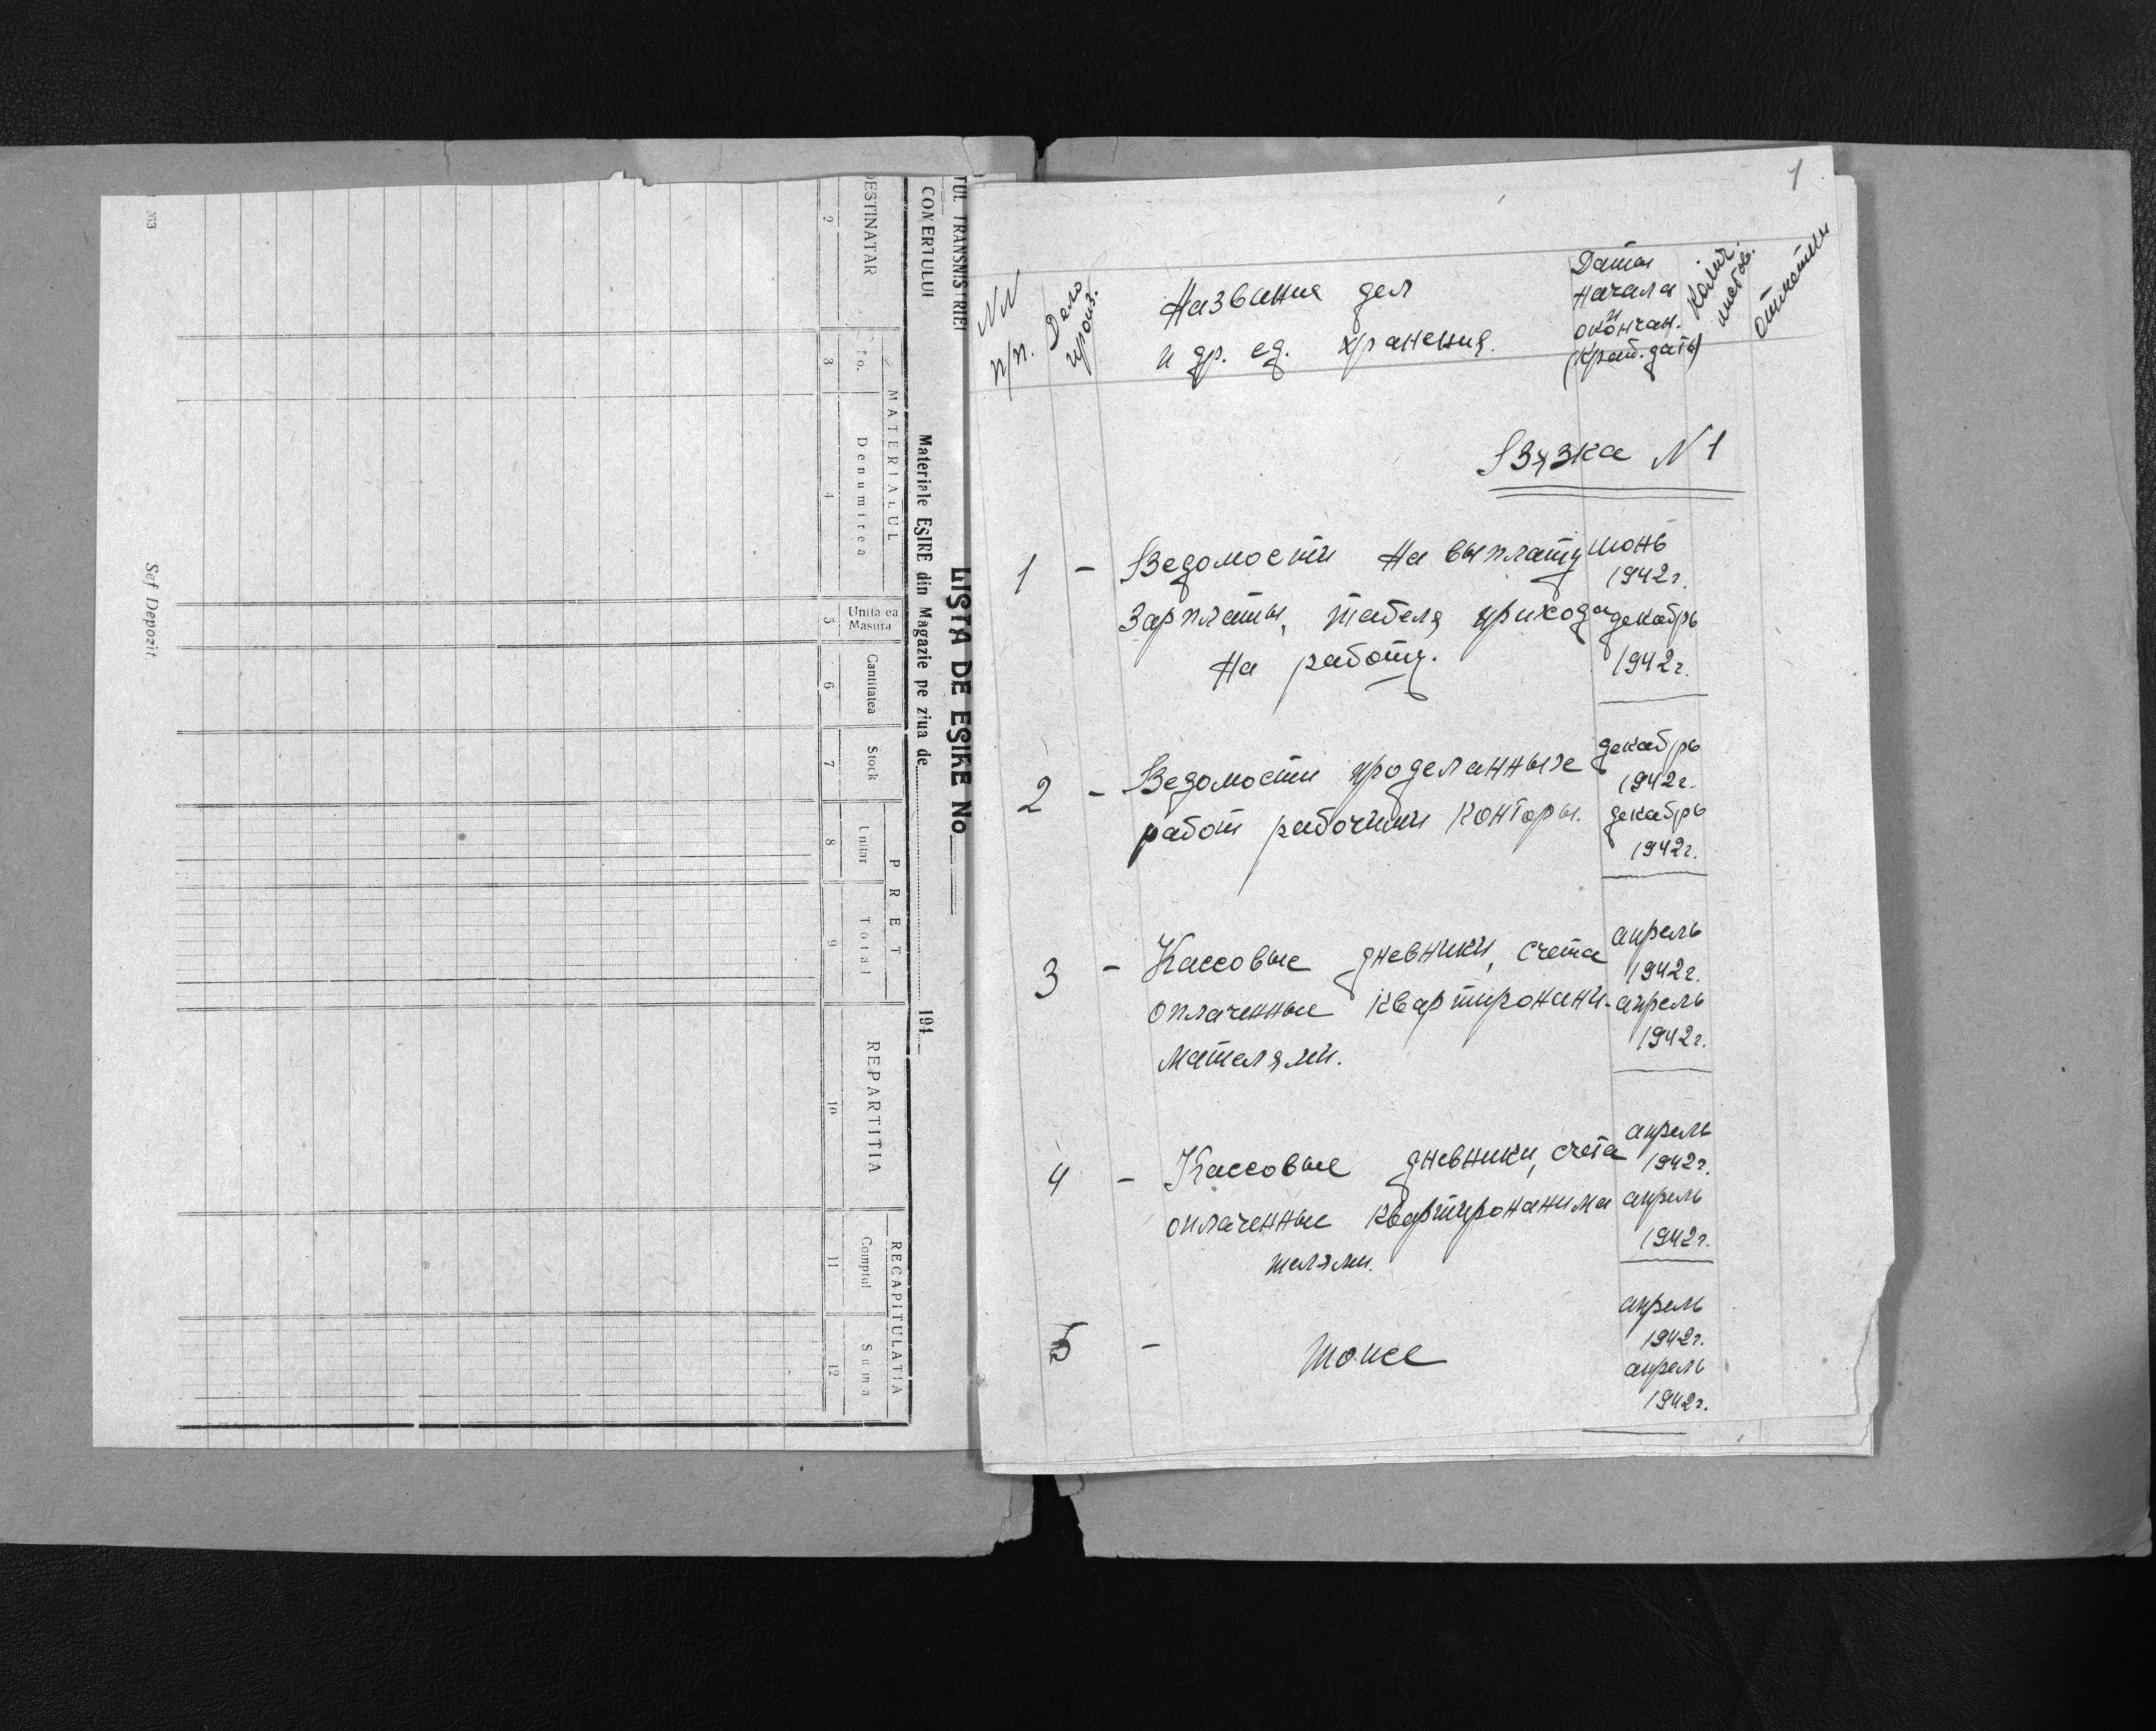 TUL TRANSNISTRIEI
CONVERTULUI
LISTA DE EȘIRE No
Materiale EȘIRE din Magazie pe ziua de 194
DESTINATAR
MATERIALUL
PRET
REPARTITIA
RECAPITULATIA
Denumirea
Unitatea
Masura
Cantitatea
Stock
Unitar
Total
Comptul
Suma
2 3 4 5 6 7 8 9 10 11 12
Sef Depozit
1
NN
п/п.
Дело
произ.
Названия дел
и др. ед. хранения.
Даты
начала
и
окончан.
(Крат. даты)
Колич.
листов.
отметки
Вязка N 1
1 - Ведомости на выплату июнь
1942г.
зарплаты, табеля прихода декабрь
на работу. 1942г.
2 - Ведомости проделанных декабрь
1942г.
работ рабочими конторы. декабрь
1942г.
3 - Кассовые дневники, счета апрель
1942г.
оплаченные квартиронани- апрель
1942г.
мателями.
4 - Кассовые дневники, счета апрель
1942г.
оплаченные квартиронанима апрель
1942г.
телями.
5 - тоже апрель
1942г.
апрель
1942г.